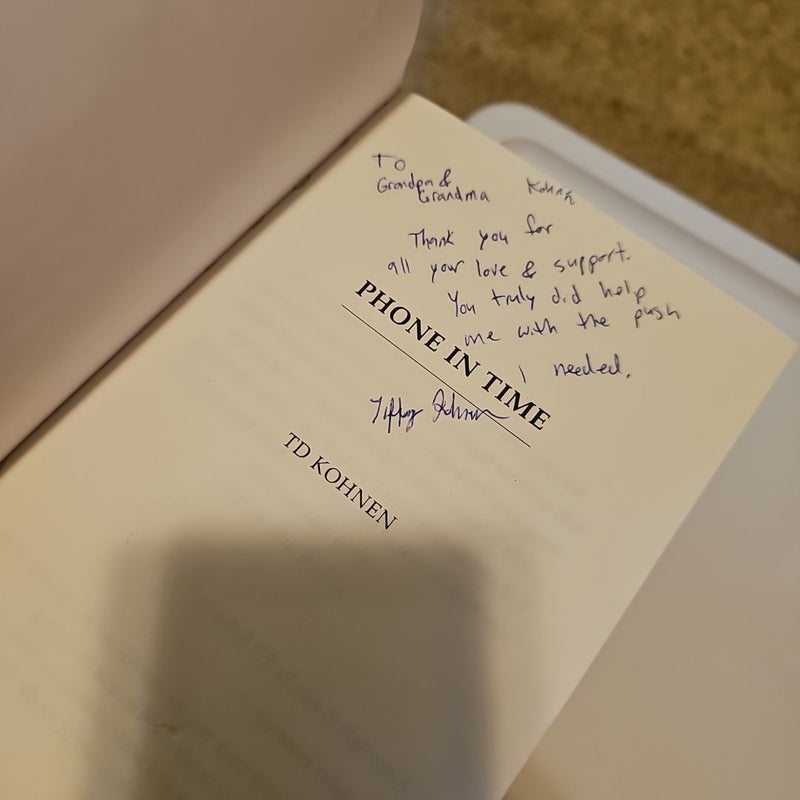 To
Grandpa &
Grandma
Thank you for
all your love & support.
You truly did help
me with the push
I needed.
PHONE IN TIME
TD KOHNEN